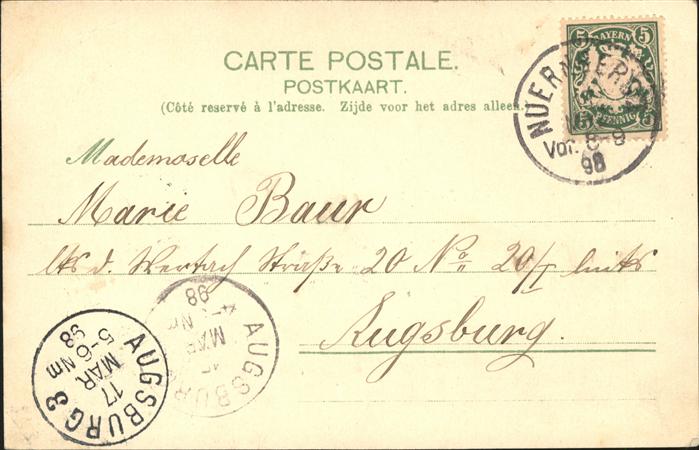 CARTE POSTALE.
POSTKAART.
(Côté reservé à l'adresse. Zijde voor het adres alleen.
5 BAYERN 5
5 PFENNIG 5
NUERNBERG
Vor. 8-9
98
Mademoselle
Marie Baur
lks d. Wertach Straße 20 No 20/I links
Augsburg.
AUGSBURG
MAR
Nm
98
AUGSBURG 3
17
MAR
5-6 Nm
98